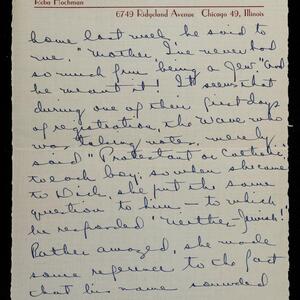 Reba Hochman
6749 Ridgeland Avenue Chicago 49, Illinois
home last week he said to
me, "Mother, I've never had
so much fun being a Jew" and
he meant it! It seems that
during one of their first days
of registration, the Wave who
was taking notes, merely
said "Protestant or Catholic"
to each boy, so when she came
to Dick, she put the same
question to him - to which
he responded "Neither - Jewish!"
Rather amazed, she made
some reference to the fact
that his name sounded